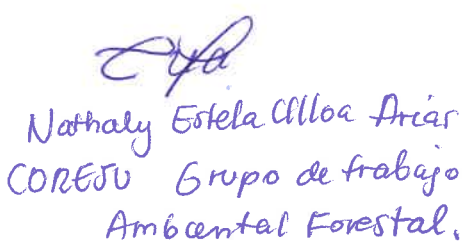 Nathaly Estela Ulloa Arias
COREJU Grupo de trabajo
Ambiental Forestal.